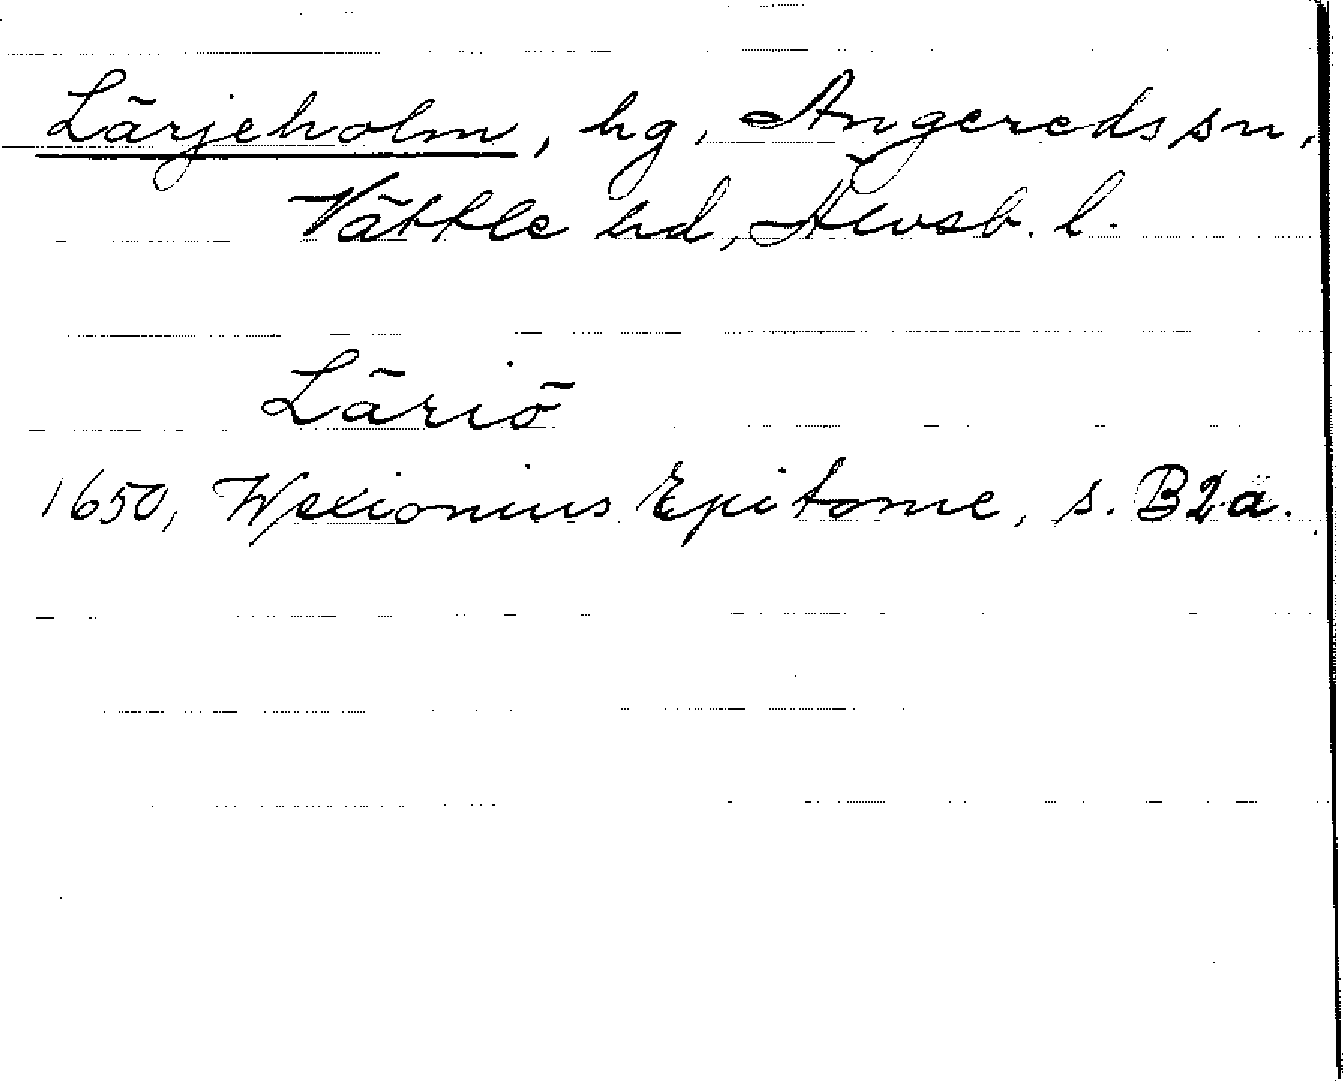 Lärjeholm, hg, Angereds sn,
Vättle hd, Älvsb. l.
Läriö
1650, Wexionius Epitome, s. B2a.